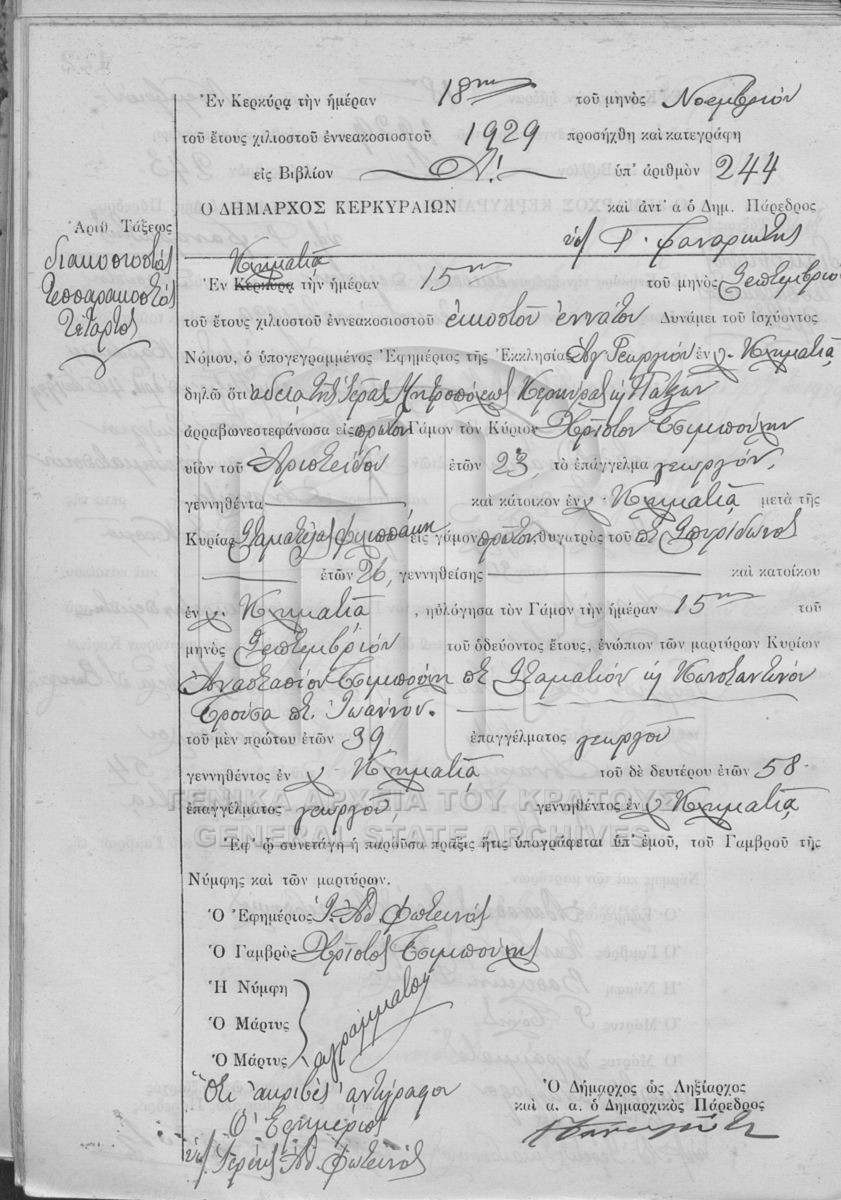 Ἐν Κερκύρᾳ τὴν ἡμέραν 18ην τοῦ μηνὸς Νοεμβρίου
τοῦ ἔτους χιλιοστοῦ ἐννεακοσιοστοῦ 1929 προσήχθη καὶ κατεγράφη
εἰς Βιβλίον Α! ὑπ' ἀριθμὸν 244
Ο ΔΗΜΑΡΧΟΣ ΚΕΡΚΥΡΑΙΩΝ καὶ ἀντ' α ὁ Δημ. Πάρεδρος
Ἀριθ. Τάξεως
διακοσιοστὸς
τεσσαρακοστὸς
τέταρτος
Κληματιᾷ
Ἐν Κερκύρᾳ τὴν ἡμέραν 15ην τοῦ μηνὸς Σεπτεμβρίου
τοῦ ἔτους χιλιοστοῦ ἐννεακοσιοστοῦ εἰκοστοῦ ἐννάτου Δυνάμει τοῦ ἰσχύοντος
Νόμου, ὁ ὑπογεγραμμένος Ἐφημέριος τῆς Ἐκκλησίας Ἁγ Γεωργίου ἐν Κληματιᾷ
δηλῶ ὅτι ἀδείᾳ τῆς Ἱερᾶς Μητροπόλεως Κερκύρας ϗ Παξῶν
ἀρραβωνεστεφάνωσα εἰς πρῶτον Γάμον τὸν Κύριον Χρῖστον Τσιμπούλην
υἱὸν τοῦ Ἀριστείδου ἐτῶν 23, τὸ ἐπάγγελμα γεωργόν,
γεννηθέντα καὶ κάτοικον ἐν Κληματιᾷ μετὰ τῆς
Κυρίας Σταματέλας εἰς γάμον πρῶτον, θυγατρὸς τοῦ Σπυρίδωνος
ἐτῶν 26, γεννηθείσης καὶ κατοίκου
ἐν Κληματιᾷ, ηὐλόγησα τὸν Γάμον τὴν ἡμέραν 15ην τοῦ
μηνὸς Σεπτεμβρίου τοῦ ὁδεύοντος ἔτους, ἐνώπιον τῶν μαρτύρων Κυρίων
Ἀναστασίου Τσιμπούλη Σταματίου ϗ Κωνσταντίνου
Τρούσα Ἰωάννου.
τοῦ μὲν πρώτου ἐτῶν 39 ἐπαγγέλματος γεωργοῦ
γεννηθέντος ἐν Κληματιᾷ τοῦ δὲ δευτέρου ἐτῶν 58
ΓΕΝΙΚΑ ΑΡΧΕΙΑ ΤΟΥ ΚΡΑΤΟΥΣ
ἐπαγγέλματος γεωργοῦ, γεννηθέντος ἐν Κληματιᾷ
GENERAL STATE ARCHIVES
Ἐφ' ᾧ συνετάγη ἡ παροῦσα πρᾶξις ἥτις ὑπογράφεται ὑπ' ἐμοῦ, τοῦ Γαμβροῦ τῆς
Νύμφης καὶ τῶν μαρτύρων.
Ὁ Ἐφημέριος Ἱ. Ἀθ. Φωτεινός
Ὁ Γαμβρὸς Χρῖστος Τσιμπούλης
Ἡ Νύμφη
Ὁ Μάρτυς
Ὁ Μάρτυς
ἀγράμματοι
Ὅτι ἀκριβὲς ἀντίγραφον
Ὁ Ἐφημέριος
Ἱερεὺς Ἀθ. Φωτεινός
Ὁ Δήμαρχος ὡς Ληξίαρχος
καὶ α. α. ὁ Δημαρχικὸς Πάρεδρος